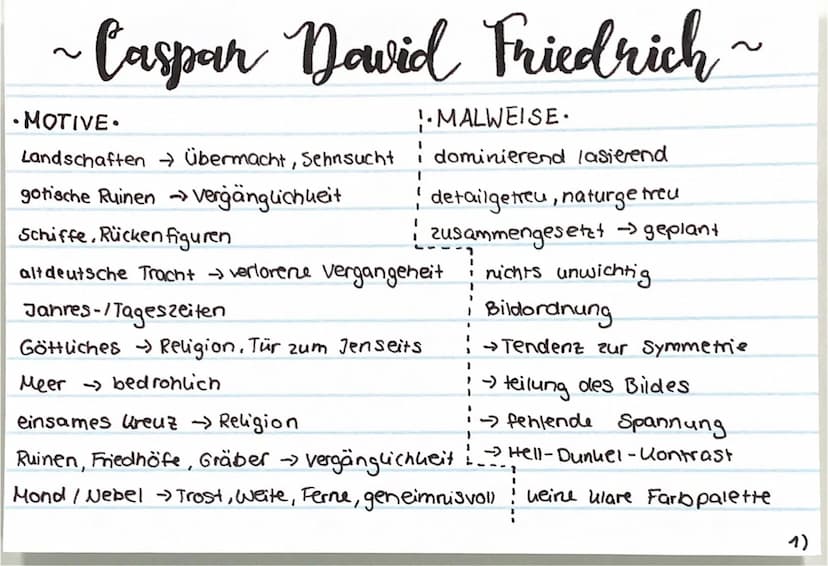 ~ Caspar David Friedrich ~
• MOTIVE •
Landschaften → Übermacht, Sehnsucht
gotische Ruinen → Vergänglichkeit
Schiffe, Rückenfiguren
altdeutsche Tracht → verlorene Vergangeheit
Jahres-/Tageszeiten
Göttliches → Religion, Tür zum Jenseits
Meer → bedrohlich
einsames Kreuz → Religion
Ruinen, Friedhöfe, Gräber → Vergänglichkeit
Mond / Nebel → Trost, Weite, Ferne, geneimnisvoll
• MALWEISE •
dominierend lasierend
detailgetreu, naturgetreu
zusammengesetzt → geplant
nichts unwichtig
Bildordnung
→ Tendenz zur Symmetrie
→ teilung des Bildes
→ fehlende Spannung
→ Hell-Dunkel-Kontrast
keine klare Farbpalette
1)